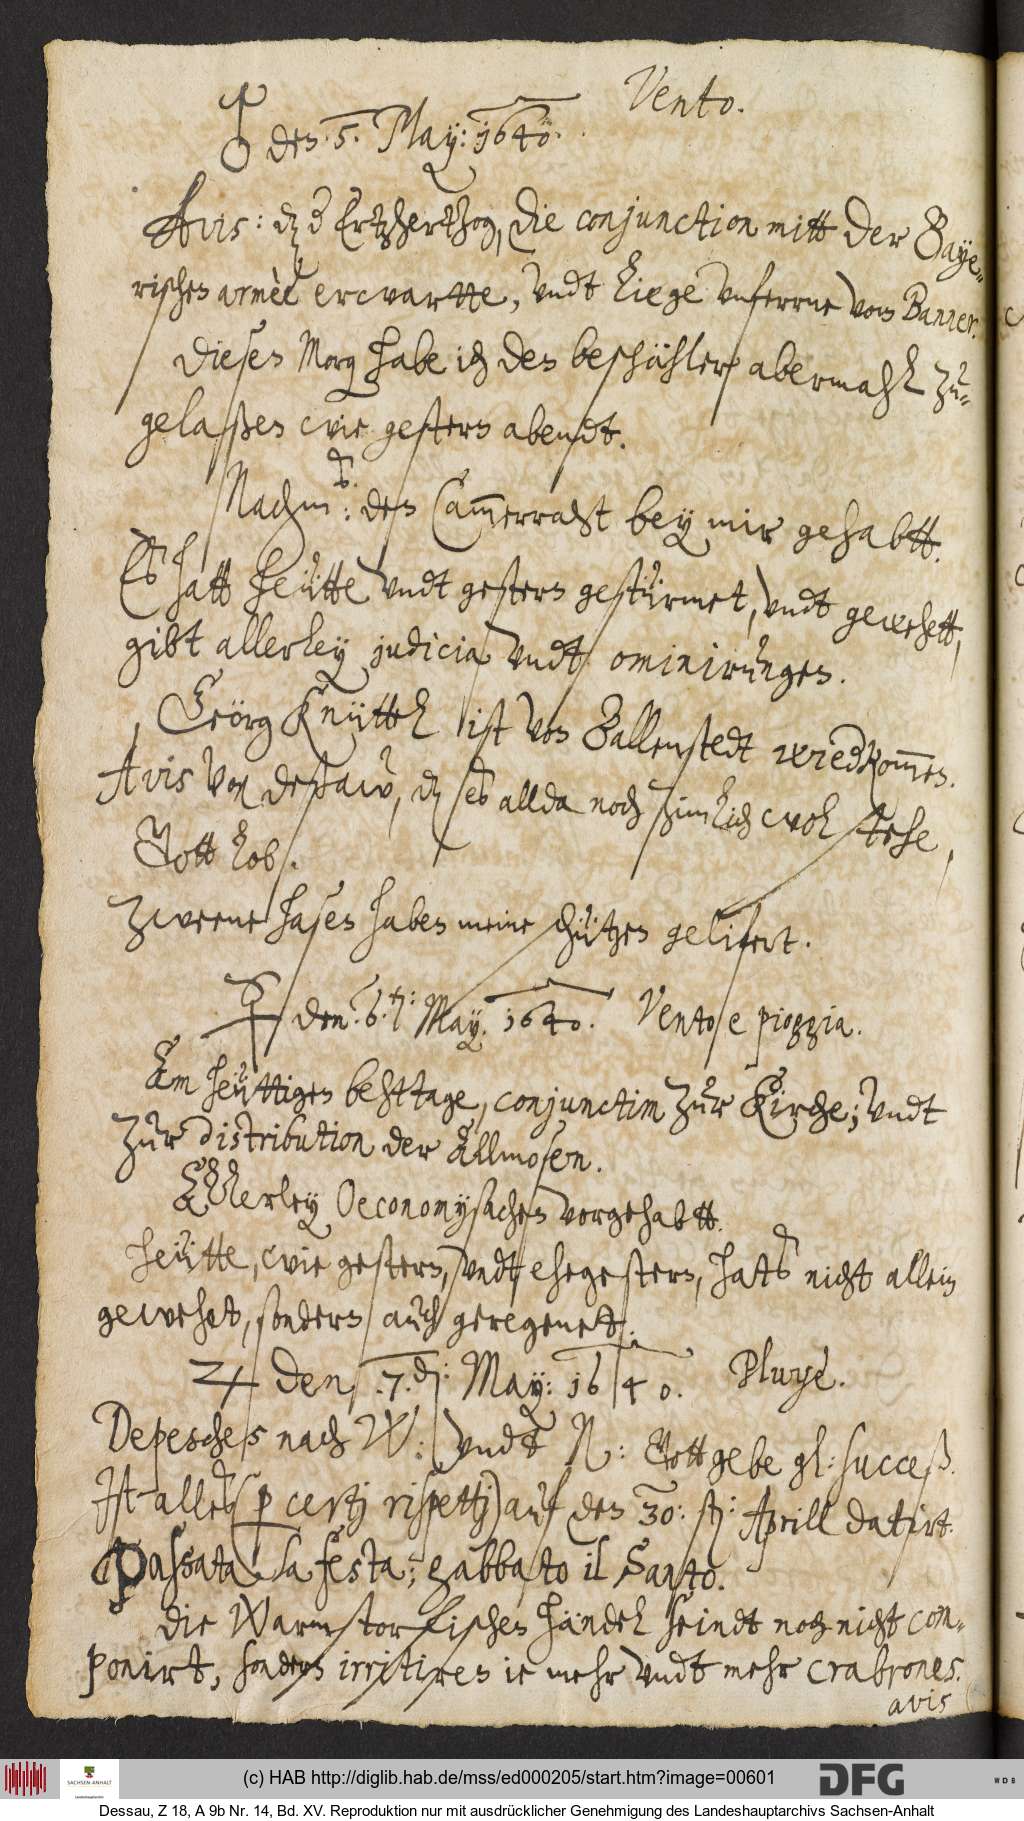 ♂ den 5. May: 1640. Vento.
Avis: dz der Ertzhertzog, die conjunction mitt der Baye-
rischen armèe erwartte, vndt liege vnferrne von Banner.
Diesen Morg habe ich den beschähler abermahl zu-
gelaßen wie gestern abendt.
Nachm: den Cammerraht bey mir gehabtt.
Es hatt heütte vndt gestern gestürmet, vndt gewehett,
gibt allerley judicia vndt ominirungen.
Geörg Knüttel ist von Ballenstedt wiedkommen.
Avis von Deßaw, dz es allda noch zimlich wol stehe,
Gott lob.
Zweene hasen haben meine schützen gelifert.
☿ den 6. May: 1640. Vento e pioggia.
Am heüttigen behttage, conjunctim zur Kirche; vndt
zur distribution der Allmosen.
Allerley Oeconomysachen vorgehabtt.
Heütte, wie gestern, vndt ehegestern, hats nicht allein
gewehet, sondern auch geregenett.
♃ den 7. May: 1640. Pluye.
Depeschen nach W: vndt R: Gott gebe gl: succeß.
Ist alles (p certj rispettj) auf den 30: Aprill datirt.
Passata la festa; gabbato il Santo.
Die Warmstorfischen händel seindt noch nicht com-
ponirt, sondern irritiren ie mehr vndt mehr crabrones.
avis
(c) HAB http://diglib.hab.de/mss/ed000205/start.htm?image=00601
SACHSEN-ANHALT
DFG
WDB
Dessau, Z 18, A 9b Nr. 14, Bd. XV. Reproduktion nur mit ausdrücklicher Genehmigung des Landeshauptarchivs Sachsen-Anhalt